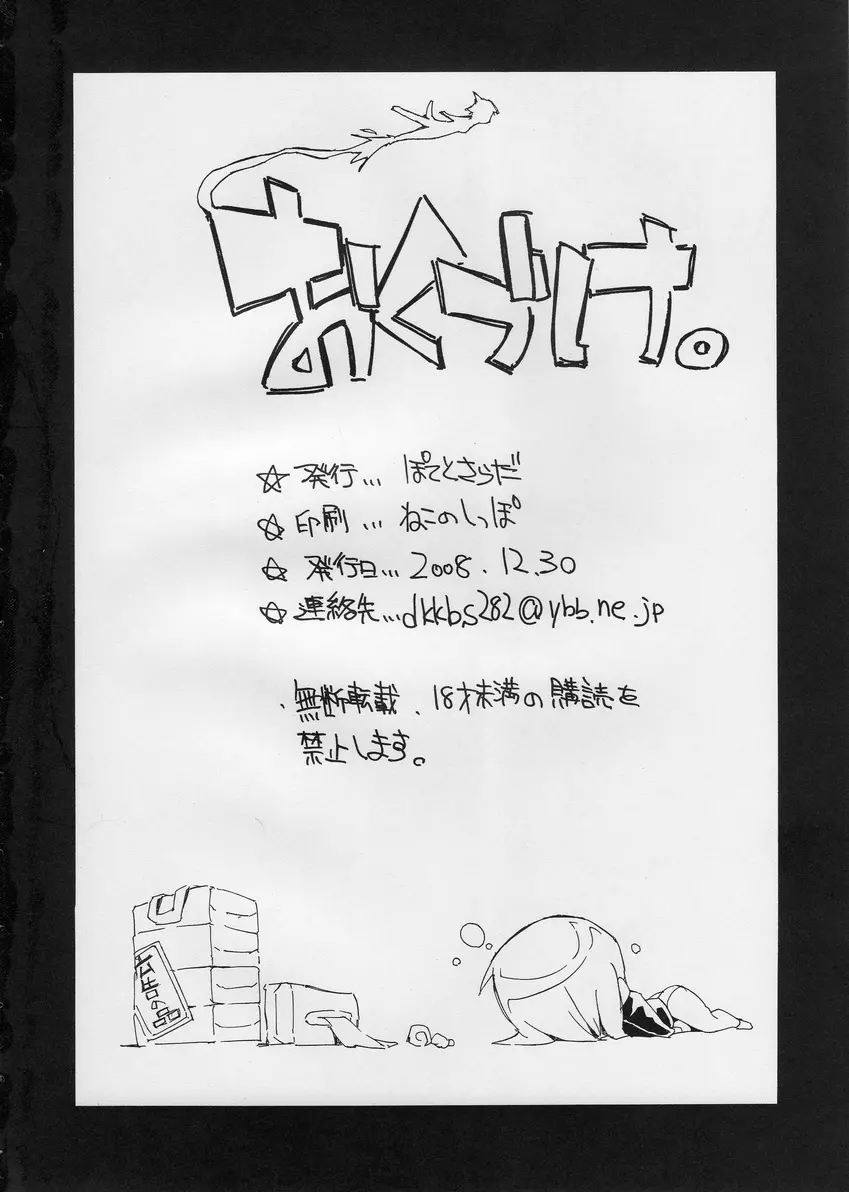 おくづけ。
☆発行… ぽてとさらだ
☆印刷… ねこのしっぽ
☆発行日…2008.12.30
☆連絡先…dkkbs282@ybb.ne.jp
・無断転載、18才未満の購読を
禁止します。
広告の品